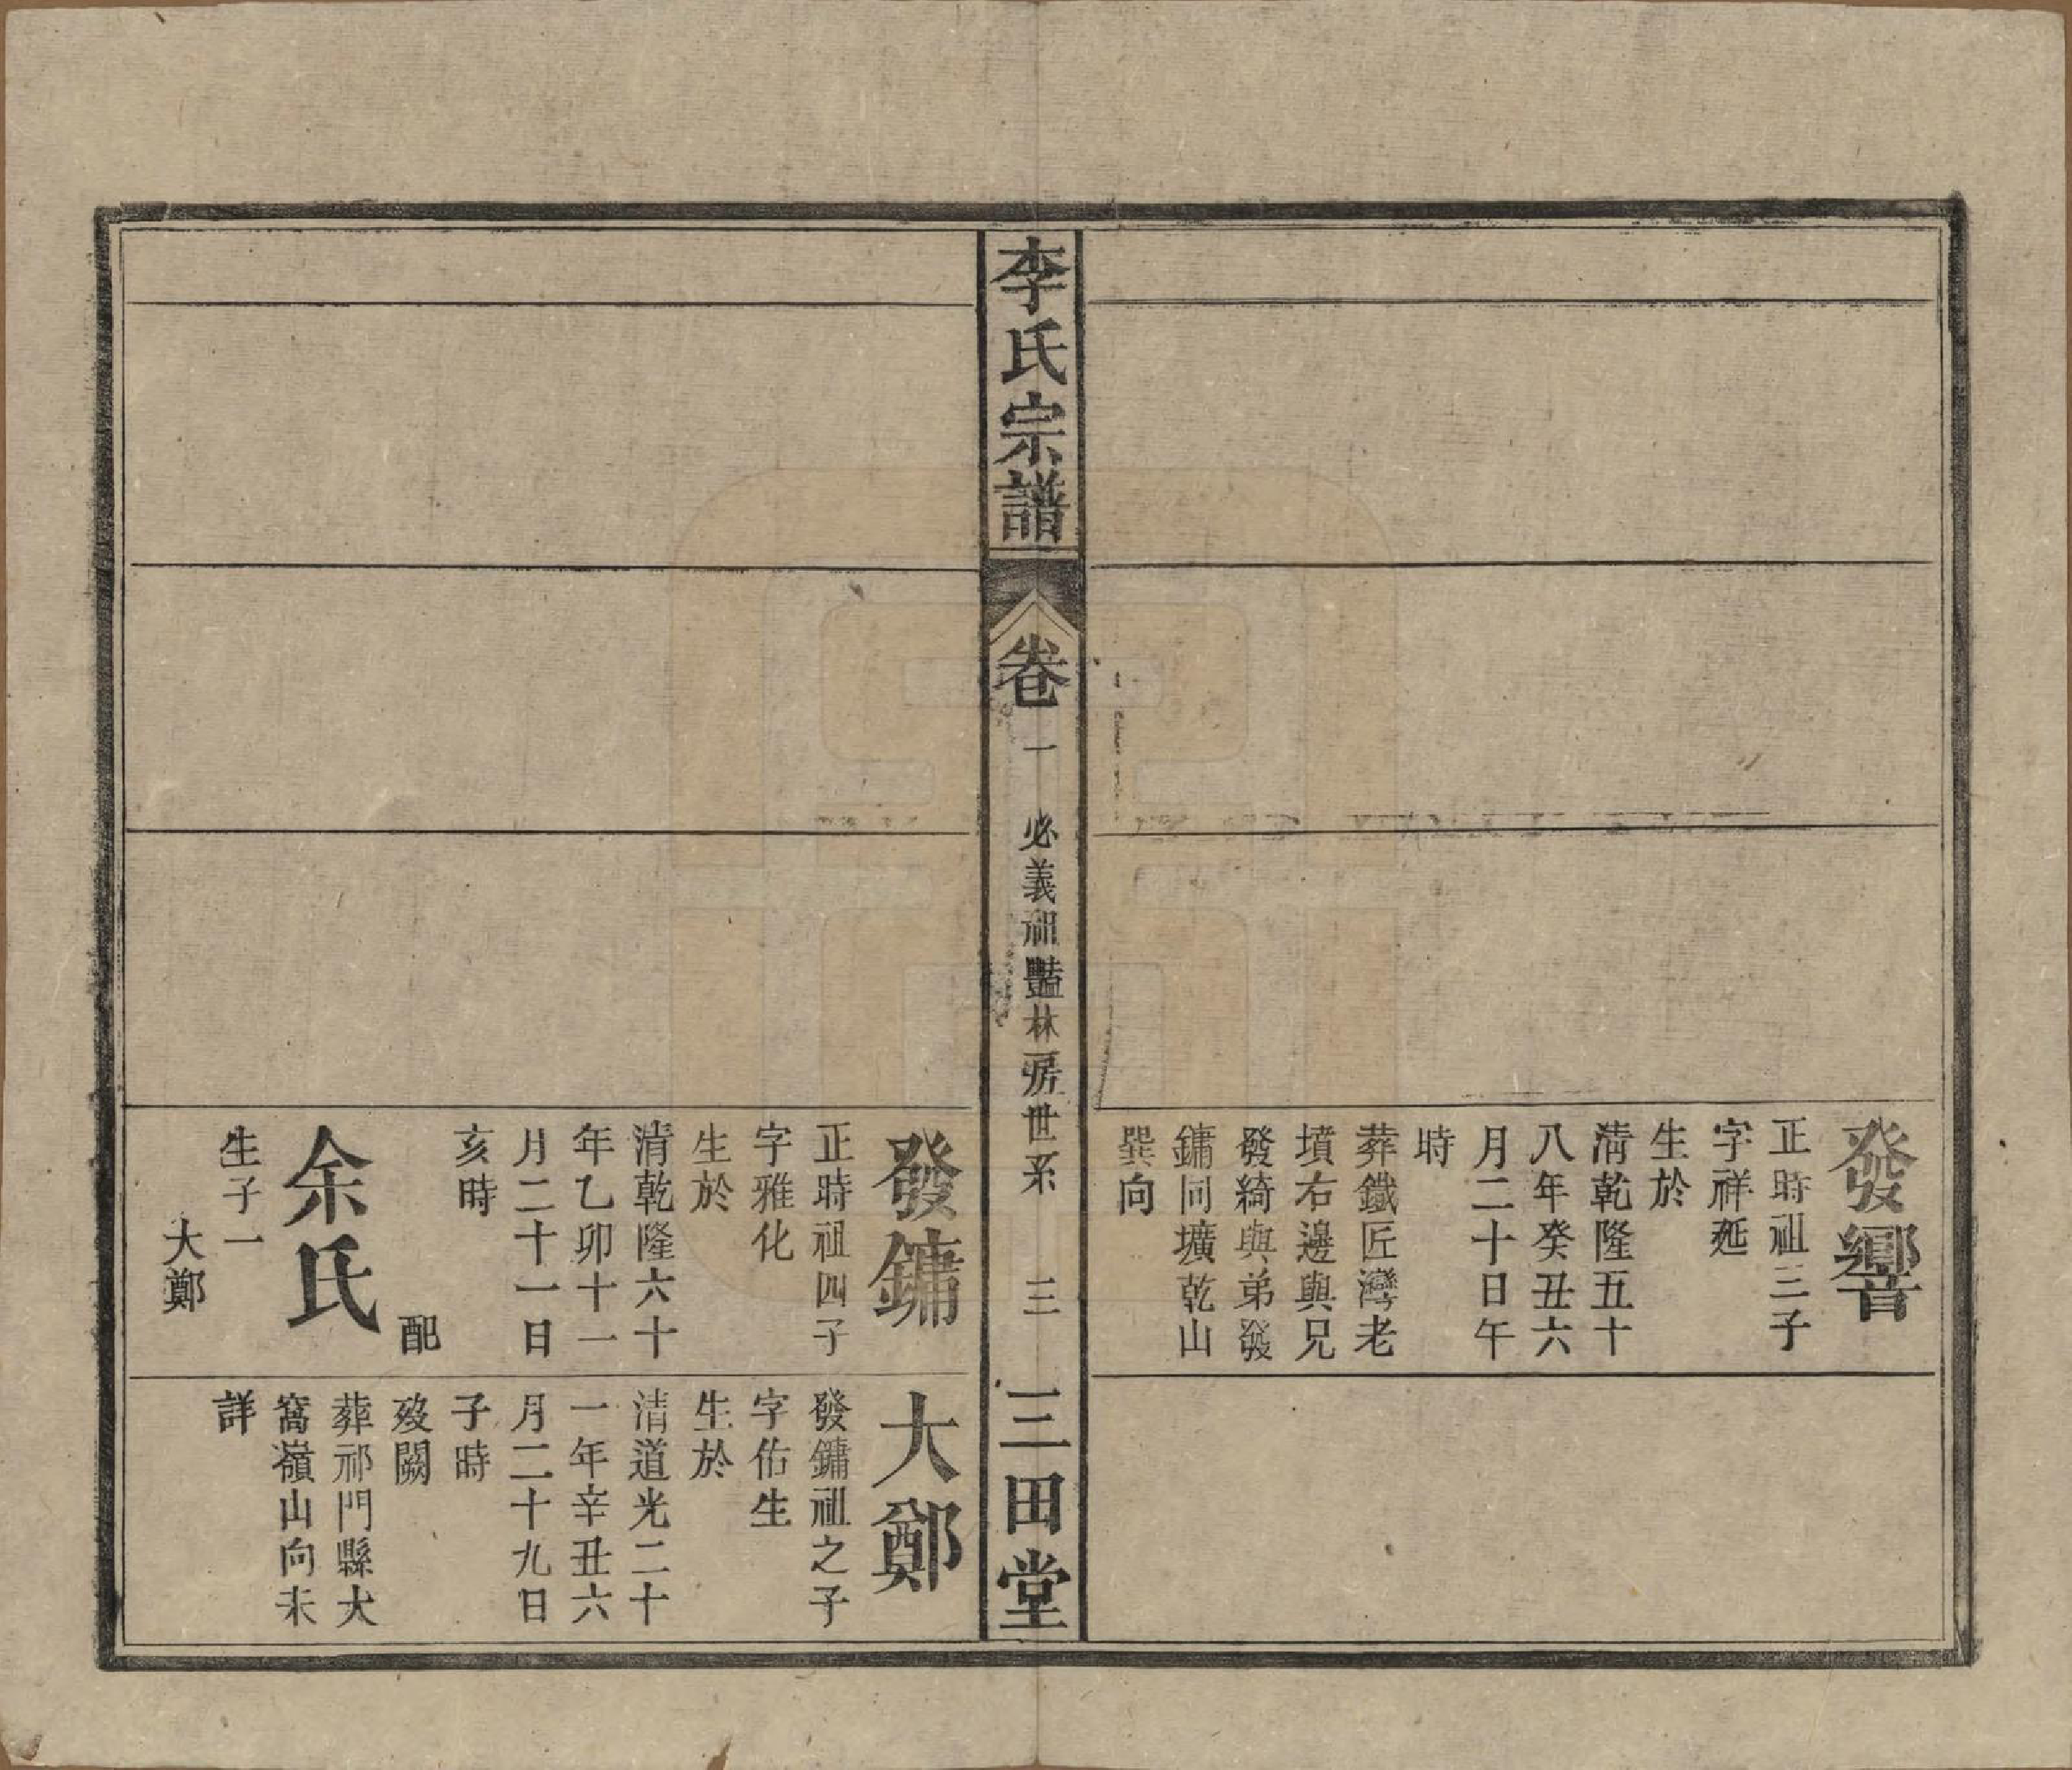 發響
正時祖三子
字祥延
生於
淸乾隆五十
八年癸丑六
月二十日午
時
葬鐵匠灣老
墳右邊與兄
發綺與弟發
鏞同壙乾山
巽向
李氏宗譜
卷一
必義祖豔林房世系
三
三田堂
發鏞
正時祖四子
字雅化
生於
清乾隆六十
年乙卯十一
月二十一日
亥時
配
余氏
生子一
大鄭
大鄭
發鏞祖之子
字佑生
生於
清道光二十
一年辛丑六
月二十九日
子時
歿闕
葬祁門縣大
窩嶺山向未
詳